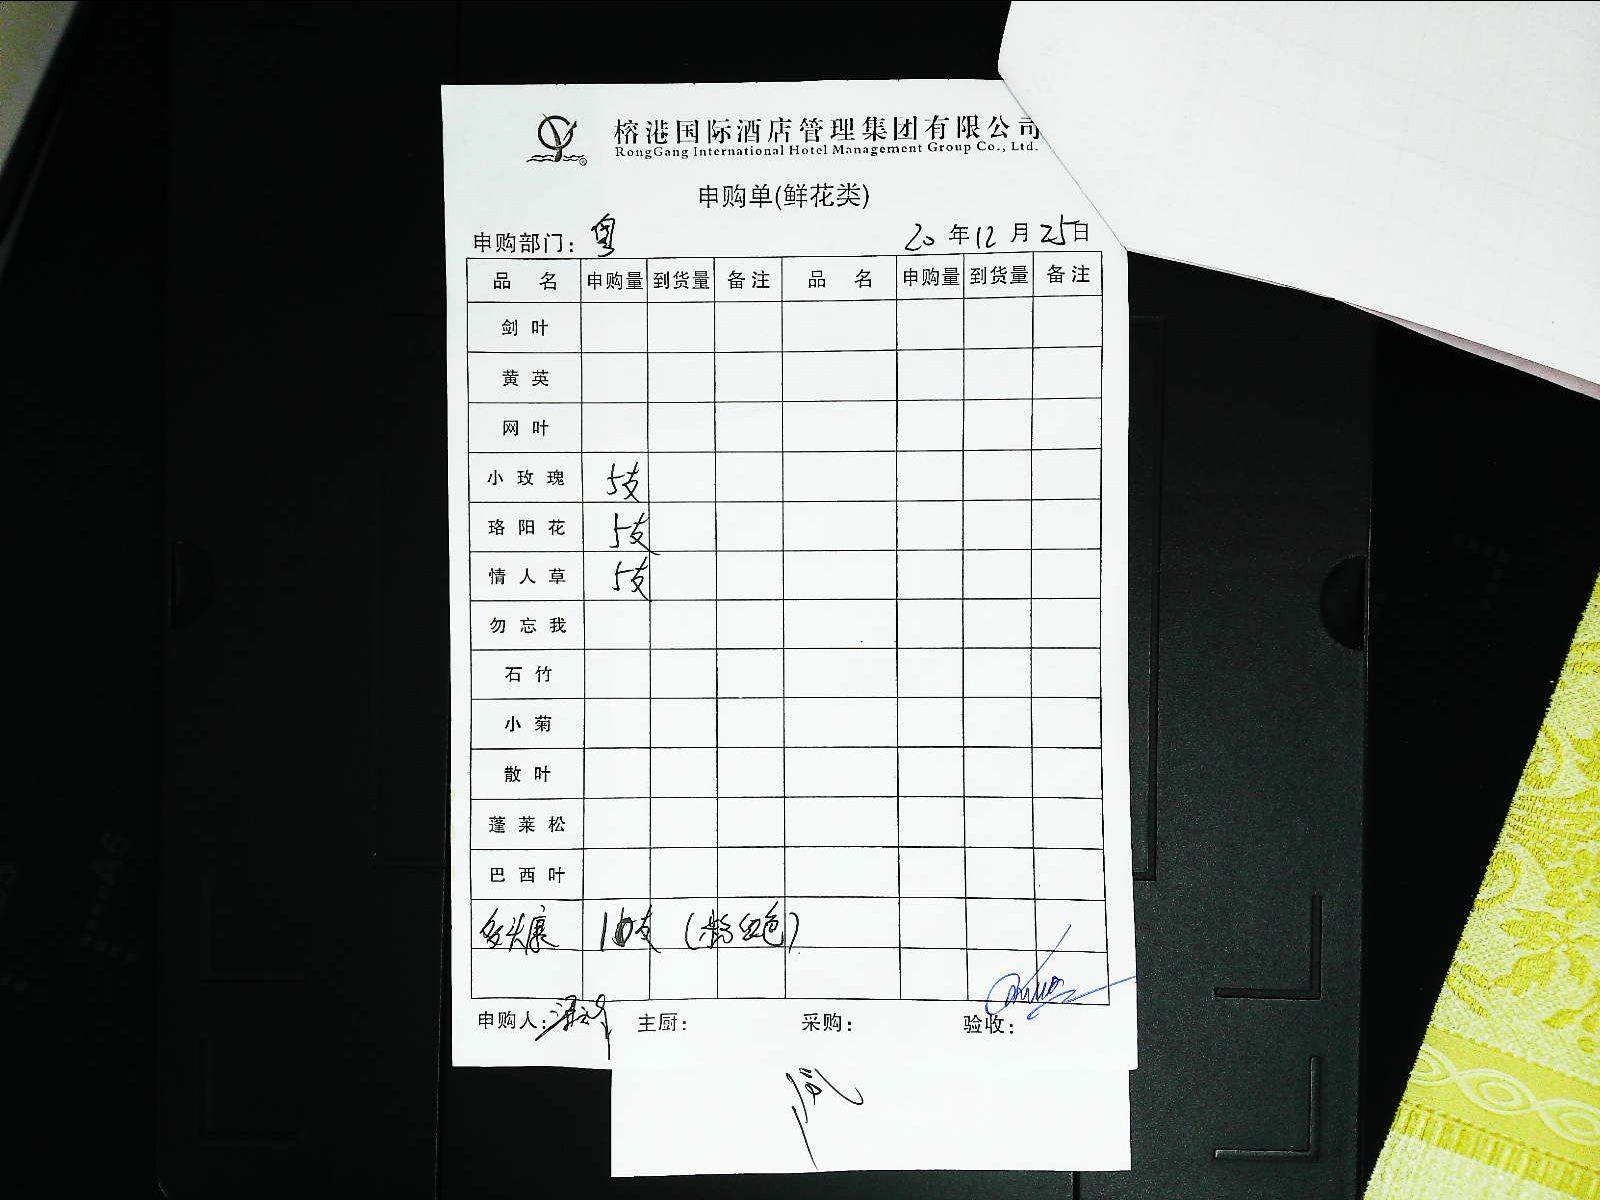 榕港国际酒店管理集团有限公司
RongGang International Hotel Management Group Co., Ltd.
申购单(鲜花类)
申购部门：粤 20年12月25日
品名 申购量 到货量 备注 品名 申购量 到货量 备注
剑叶
黄英
网叶
小玫瑰 5支
珞阳花 5支
情人草 5支
勿忘我
石竹
小菊
散叶
蓬莱松
巴西叶
多头康 10支 (粉红色)
申购人： 主厨： 采购： 验收：